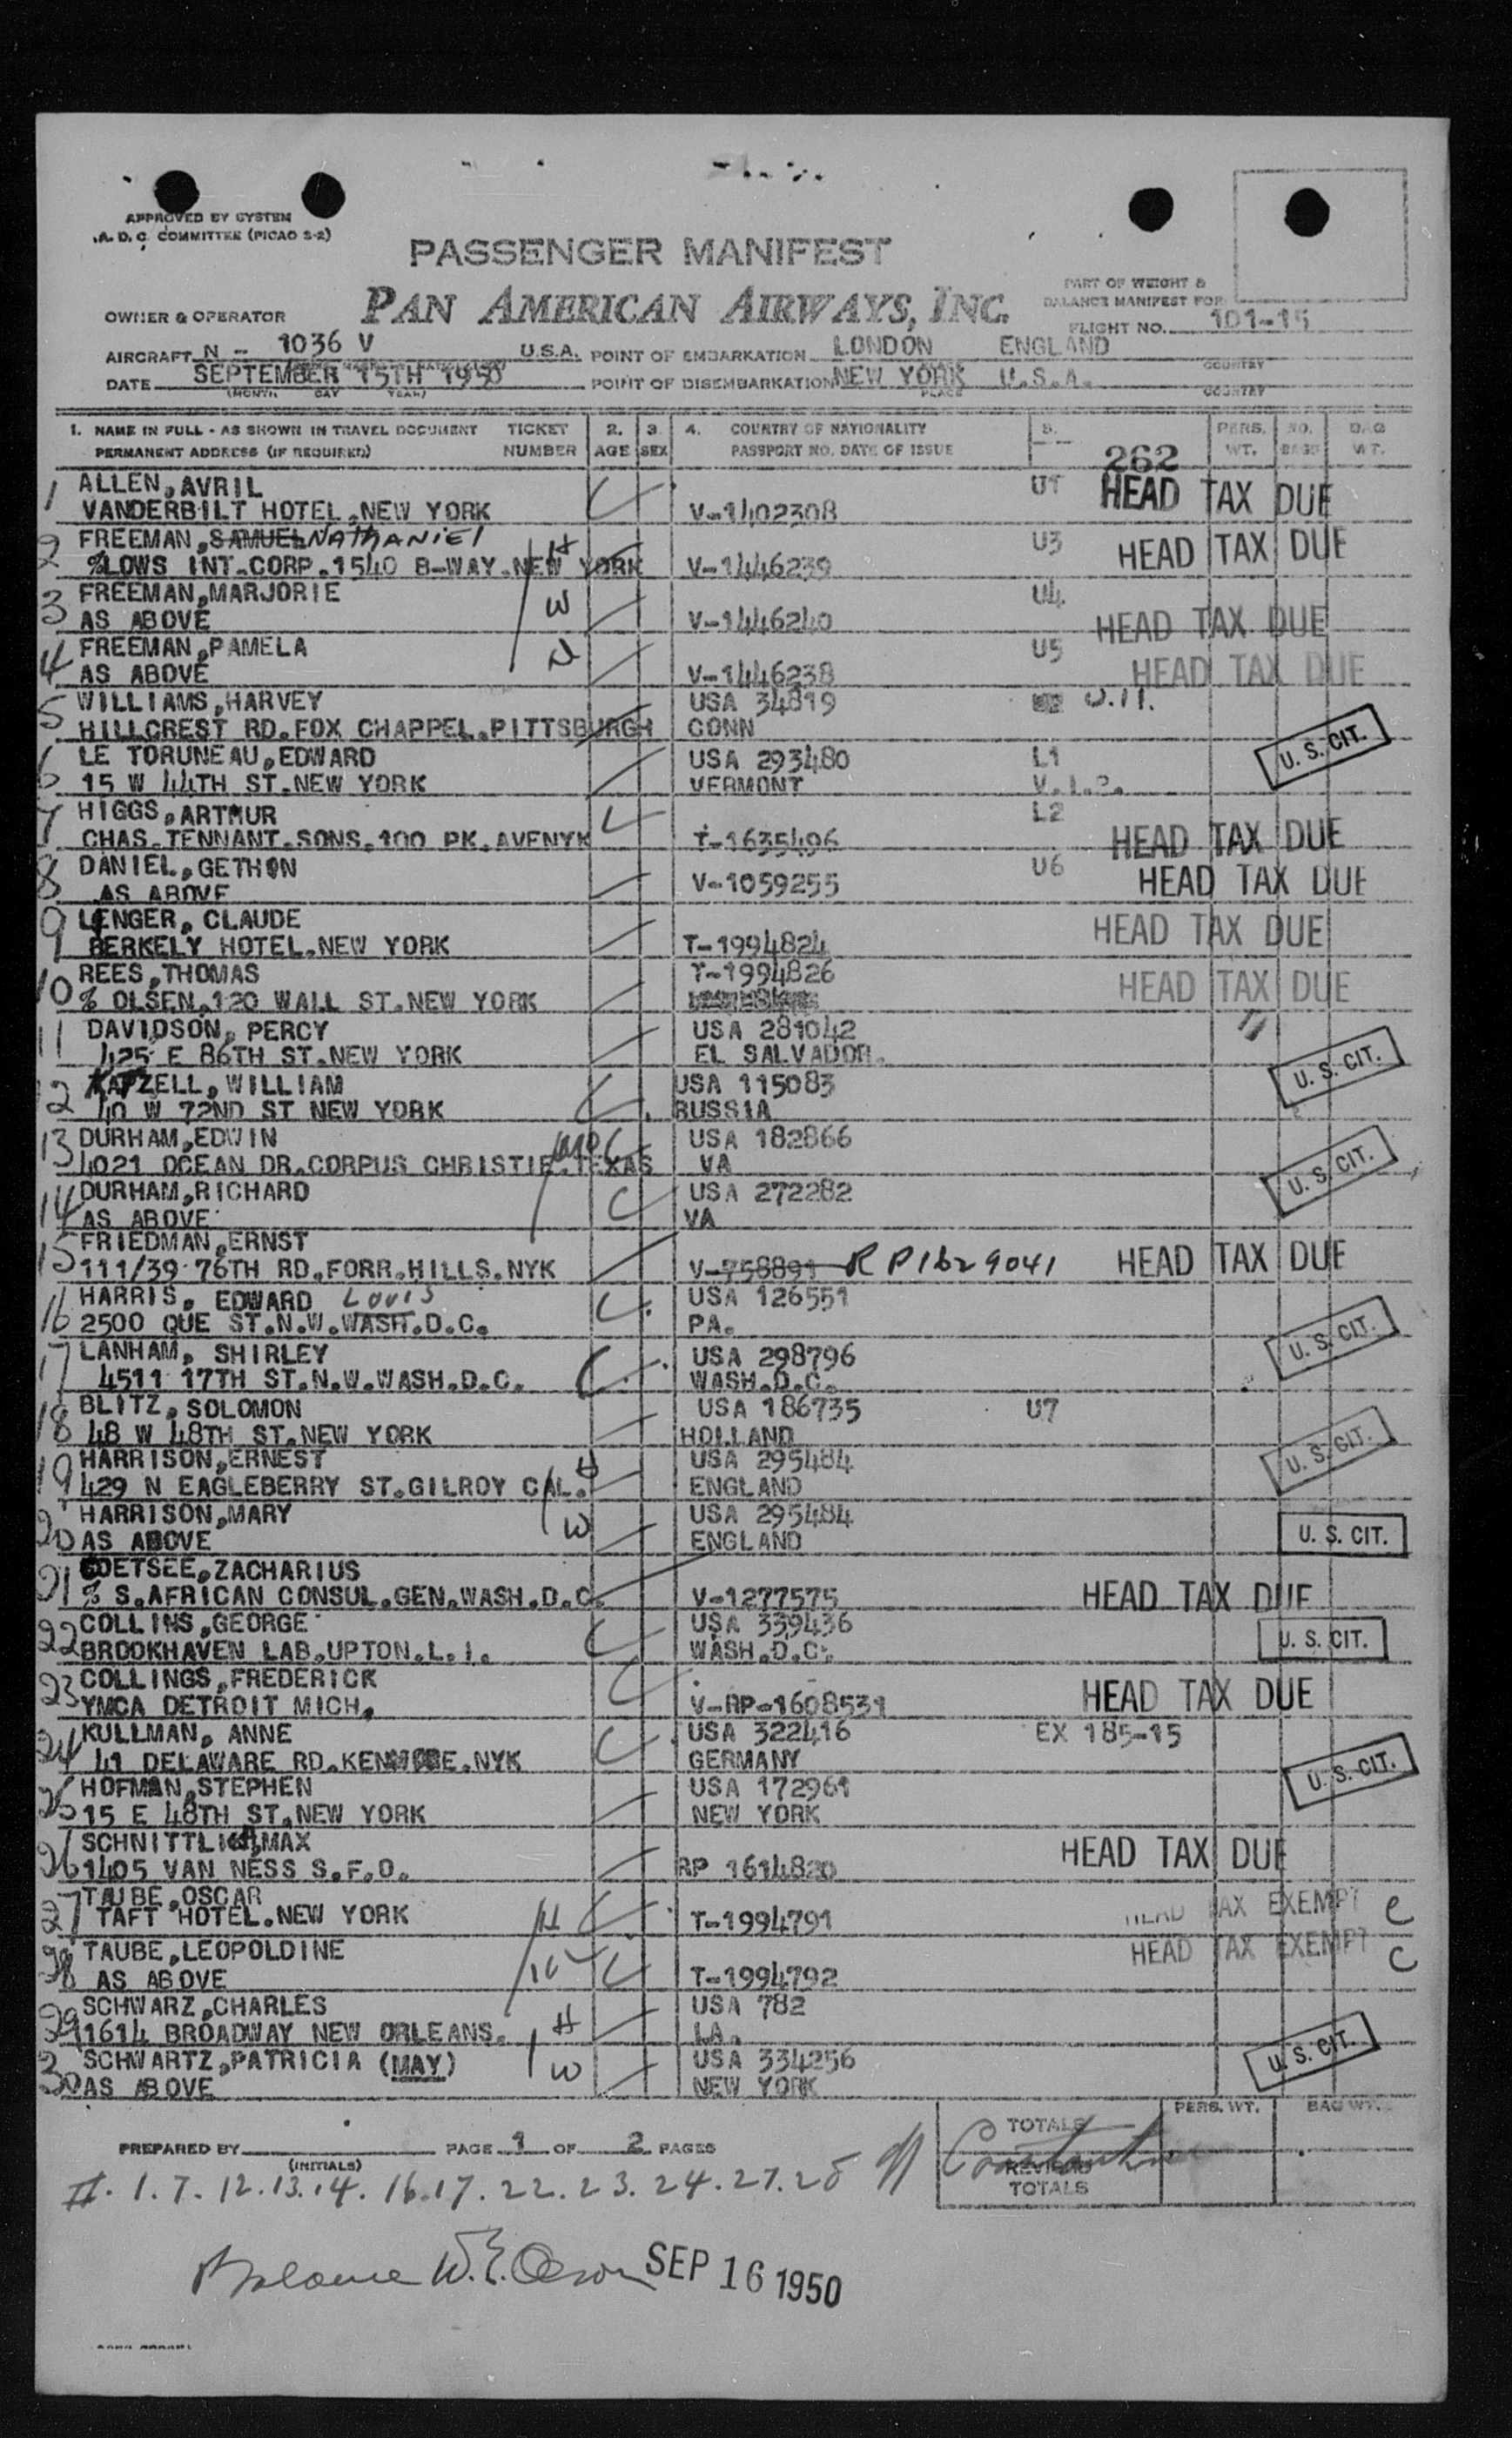 APPROVED BY SYSTEM
A. D. C. COMMITTEE (PICAO S-2)
PASSENGER MANIFEST
PART OF WEIGHT &
BALANCE MANIFEST FOR
OWNER & OPERATOR PAN AMERICAN AIRWAYS, INC.
FLIGHT NO. 101-15
AIRCRAFT N - 1036 V U.S.A. POINT OF EMBARKATION LONDON ENGLAND
COUNTRY
DATE SEPTEMBER 15TH 1950 POINT OF DISEMBARKATION NEW YORK U.S.A.
(MONTH DAY YEAR) PLACE COUNTRY
1. NAME IN FULL - AS SHOWN IN TRAVEL DOCUMENT TICKET 2. 3. 4. COUNTRY OF NATIONALITY 5. PERS. NO. BAG
PERMANENT ADDRESS (IF REQUIRED) NUMBER AGE SEX PASSPORT NO. DATE OF ISSUE 262 WT. BAGS WT.
1 ALLEN, AVRIL U1 HEAD TAX DUE
VANDERBILT HOTEL.NEW YORK V-1402308
2 FREEMAN,SAMUEL NATHANIEL H U3 HEAD TAX DUE
%LOWS INT.CORP.1540 B-WAY.NEW YORK V-1446239
3 FREEMAN,MARJORIE W U4
AS ABOVE V-1446240 HEAD TAX DUE
4 FREEMAN,PAMELA U5
AS ABOVE V-1446238 HEAD TAX DUE
5 WILLIAMS,HARVEY USA 34819 U.11.
HILLCREST RD.FOX CHAPPEL.PITTSBURGH CONN
6 LE TORUNEAU,EDWARD USA 293480 L1 U. S. CIT.
15 W 44TH ST.NEW YORK VERMONT V.I.P.
7 HIGGS,ARTHUR L2
CHAS.TENNANT.SONS.100 PK.AVENYK T-1635496 HEAD TAX DUE
8 DANIEL,GETHON U6
AS ABOVE V-1059255 HEAD TAX DUE
9 LENGER, CLAUDE HEAD TAX DUE
BERKELY HOTEL.NEW YORK T-1994824
10 REES,THOMAS T-1994826
% OLSEN.120 WALL ST.NEW YORK HEAD TAX DUE
11 DAVIDSON, PERCY USA 281042
425 E 86TH ST.NEW YORK EL SALVADOR. U. S. CIT.
12 KATZELL, WILLIAM USA 115083
10 W 72ND ST NEW YORK RUSSIA
13 DURHAM,EDWIN USA 182866
4021 OCEAN DR.CORPUS CHRISTIE.TEXAS VA U. S. CIT.
14 DURHAM,RICHARD USA 272282
AS ABOVE VA
15 FRIEDMAN,ERNST
111/39 76TH RD.FORR.HILLS.NYK V-758891 RP1629041 HEAD TAX DUE
16 HARRIS, EDWARD Louis USA 126551
2500 QUE ST.N.W.WASH.D.C. PA. U. S. CIT.
17 LANHAM, SHIRLEY USA 298796
4511 17TH ST.N.W.WASH.D.C. WASH.D.C.
18 BLITZ, SOLOMON USA 186735 U7
48 W 48TH ST.NEW YORK HOLLAND U. S. CIT.
19 HARRISON,ERNEST H USA 295484
429 N EAGLEBERRY ST.GILROY CAL. ENGLAND
20 HARRISON,MARY W USA 295484
AS ABOVE ENGLAND U. S. CIT.
21 COETSEE,ZACHARIUS
% S.AFRICAN CONSUL.GEN.WASH.D.C. V-1277575 HEAD TAX DUE
22 COLLINS,GEORGE USA 339436
BROOKHAVEN LAB.UPTON.L.I. WASH.D.C. U. S. CIT.
23 COLLINGS,FREDERICK
YMCA DETROIT MICH. V-RP-1608531 HEAD TAX DUE
24 KULLMAN, ANNE USA 322416 EX 185-15
41 DELAWARE RD.KENMORE.NYK GERMANY U. S. CIT.
25 HOFMAN,STEPHEN USA 172961
15 E 48TH ST.NEW YORK NEW YORK
26 SCHNITTLICH,MAX HEAD TAX DUE
1405 VAN NESS S.F.O. RP 1614820
27 TAUBE,OSCAR HEAD TAX EXEMPT C
TAFT HOTEL.NEW YORK H T-1994791
28 TAUBE,LEOPOLDINE HEAD TAX EXEMPT C
AS ABOVE W T-1994792
29 SCHWARZ,CHARLES H USA 782
1614 BROADWAY NEW ORLEANS. LA.
30 SCHWARTZ,PATRICIA (MAY) W USA 334256 U. S. CIT.
AS ABOVE NEW YORK
PERS. WT. BAG WT.
TOTALS
PREPARED BY PAGE 1 OF 2 PAGES
(INITIALS)
REVISED
TOTALS
II. 1. 7. 12. 13. 14. 16. 17. 22. 23. 24. 27. 28
SEP 16 1950